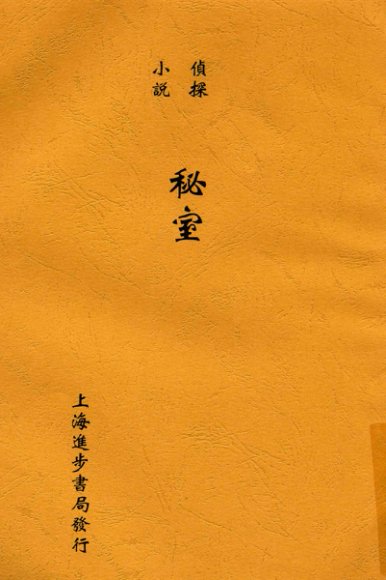 偵探
小説
秘室
上海進步書局發行